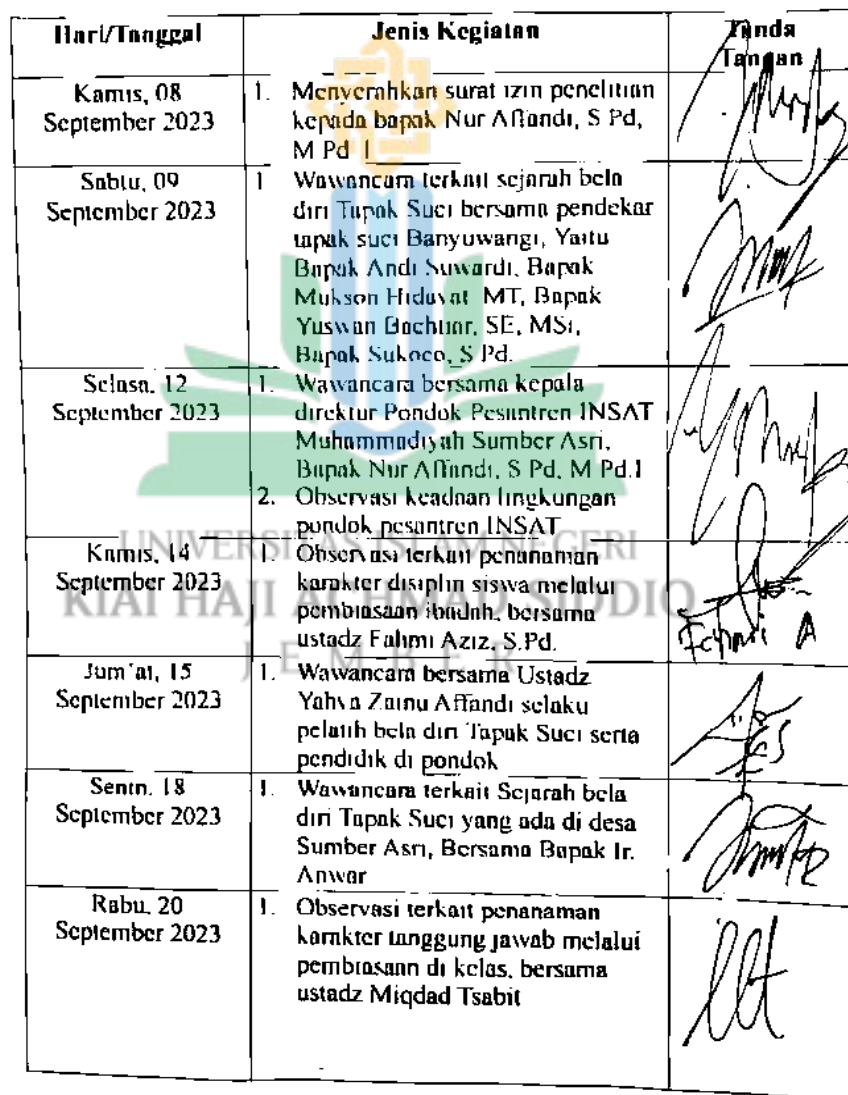 Hari/Tanggal
Jenis Kegiatan
Tanda
Tangan
Kamis, 08
September 2023
1. Menyerahkan surat izin penelitian
kepada bapak Nur Affandi, S Pd,
M Pd I
Sabtu, 09
September 2023
1 Wawancara terkait sejarah bela
diri Tapak Suci bersama pendekar
tapak suci Banyuwangi, Yaitu
Bapak Andi Suwardi, Bapak
Mukson Hidayat MT, Bapak
Yuswan Bachtiar, SE, MSi,
Bapak Sukoco, S Pd.
Selasa, 12
September 2023
1. Wawancara bersama kepala
direktur Pondok Pesantren INSAT
Muhammadiyah Sumber Asri,
Bapak Nur Affandi, S Pd, M Pd.I
2. Observasi keadaan lingkungan
pondok pesantren INSAT
Kamis, 14
September 2023
1. Observasi terkait penanaman
karakter disiplin siswa melalui
pembiasaan ibadah, bersama
ustadz Fahmi Aziz, S.Pd.
Fahmi A
Jum'at, 15
September 2023
1. Wawancara bersama Ustadz
Yahya Zainu Affandi selaku
pelatih bela diri Tapak Suci serta
pendidik di pondok
Senin, 18
September 2023
1. Wawancara terkait Sejarah bela
diri Tapak Suci yang ada di desa
Sumber Asri, Bersama Bapak Ir.
Anwar
Rabu, 20
September 2023
1. Observasi terkait penanaman
karakter tanggung jawab melalui
pembiasaan di kelas, bersama
ustadz Miqdad Tsabit
UNIVERSITAS ISLAM NEGERI
KIAI HAJI ACHMAD SIDDIQ
JEMBER